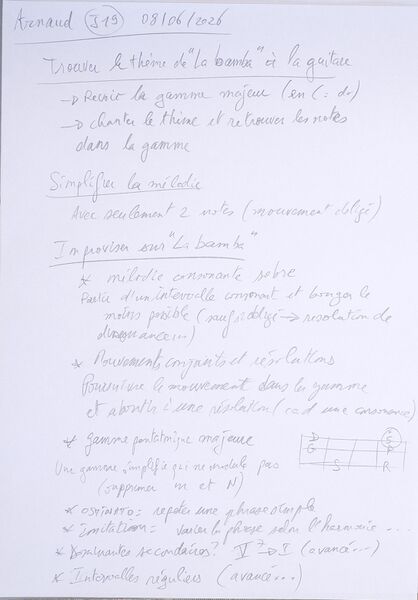 Arnaud (J19) 08/06/2026
Trouver le thème de "La bamba" à la guitare
→ Revoir la gamme majeur (en C = do)
→ chanter le thème et retrouver les notes
dans la gamme
Simplifier la mélodie
Avec seulement 2 notes (mouvement obligé)
Improviser sur "La bamba"
* mélodie consonante sobre
Partir d'un intervalle consonant et bouger le
moins possible (sauf obligé → résolution de
dissonance...)
* Mouvements conjoints et résolutions
Poursuivre le mouvement dans la gamme
et aboutir à une résolution (càd une consonance)
* Gamme pentatonique majeure
D S
G P
S R
Une gamme simplifié qui ne module pas
(supprimer m et N)
* OSTINATO = répéter une phrase simple
* Imitation = varier la phrase selon l'harmonie...
* Dominantes secondaires? V7→I (avancé...)
* Intervalles réguliers (avancé...)